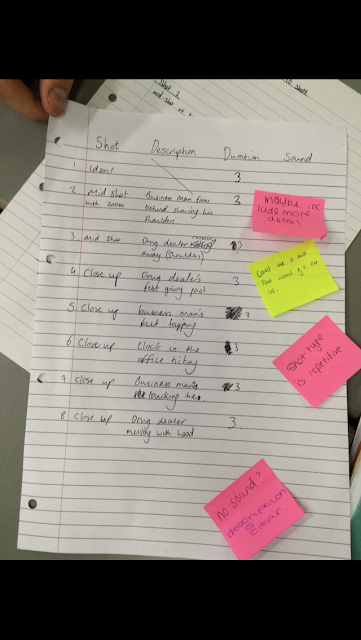 Shot Description Duration Sound
1 Ident 3
2 Mid shot Business man from 3
with zoom behind showing his
shoulders
3. Mid shot Drug dealer moving
away (shoulders)
4 Close up Drug dealer's 3
feet going past
5 Close up business man's 3
feet tapping
6 Close up Clock in the 3
office ticking
7 Close up Business man 3
touching tie
8 Close up Drug dealer 3.
meeting with head.
maybe inc
lude more
detail
shot type
is repetitive
no sound?
description
is clear.
Shot
10 shots